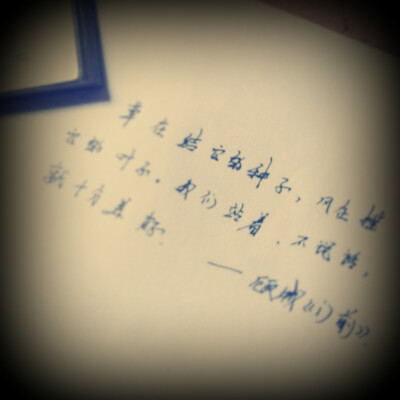 草在结它的种子，风在摇
它的叶子。我们站着，不说话，
就十分美好。
——顾城《门前》